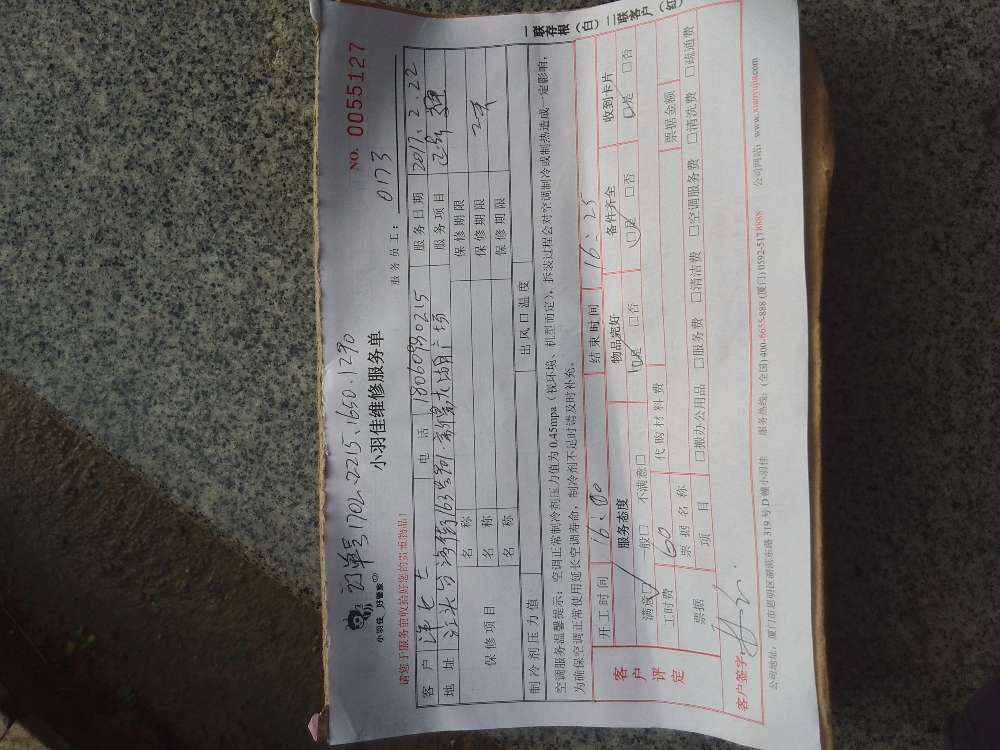 订单号1702.2215.1650.1290
小羽佳 好管家
小羽佳维修服务单
NO. 0055127
请您于服务前收拾好您的贵重物品！
服务员工： 0173
客户 电话 18060930215 服务日期 2017.2.22
地址 服务项目
保修项目
名称 保修期限
名称 保修期限
名称 保修期限
制冷剂压力值 出风口温度
空调服务温馨提示：空调正常制冷剂压力值为0.45mpa（视环境、机型而定），拆装过程会对空调制冷或制热造成一定影响，
为确保空调正常使用延长空调寿命，制冷剂不足时请及时补充。
客户评定
开工时间 16:00 结束时间 16:25
服务态度 物品完好 备件齐全 收到卡片
满意□ 一般□ 不满意□ □是 □否 □是 □否 □是 □否
工时费 160 代购材料费 票据金额
票据 票据名称
项目 □搬办公用品 □服务费 □清洁费 □空调服务费 □清洗费 □疏通费
客户签字：
公司地址：厦门市思明区湖滨东路319号D幢小羽佳 服务热线：(全国)400-6655-888 (厦门)0592-5178888 公司网站：www.xiaoyujia.com
一联存根（白） 二联客户（红）